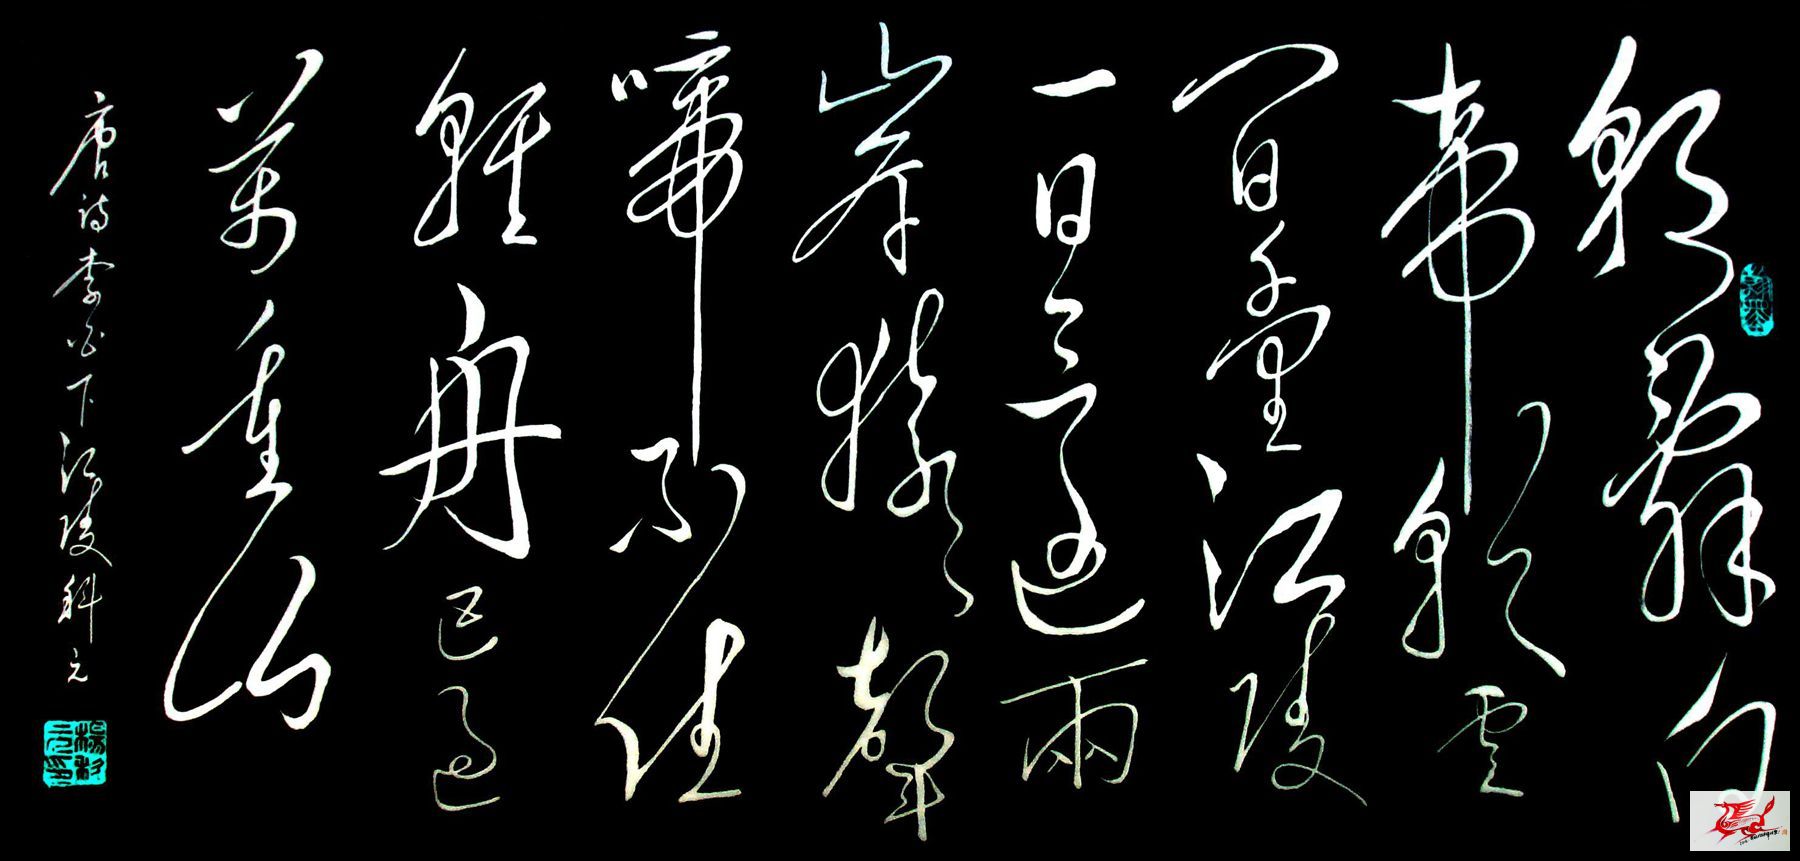 朝辭白
帝彩雲
間千里江陵
一日還兩
岸猿聲
啼不住
輕舟已過
萬重山
唐诗李白下江陵科元
楊科元印